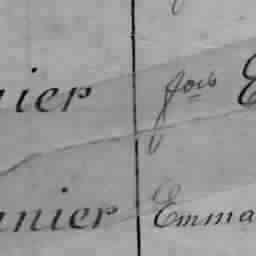 nier fois E
anier Emma